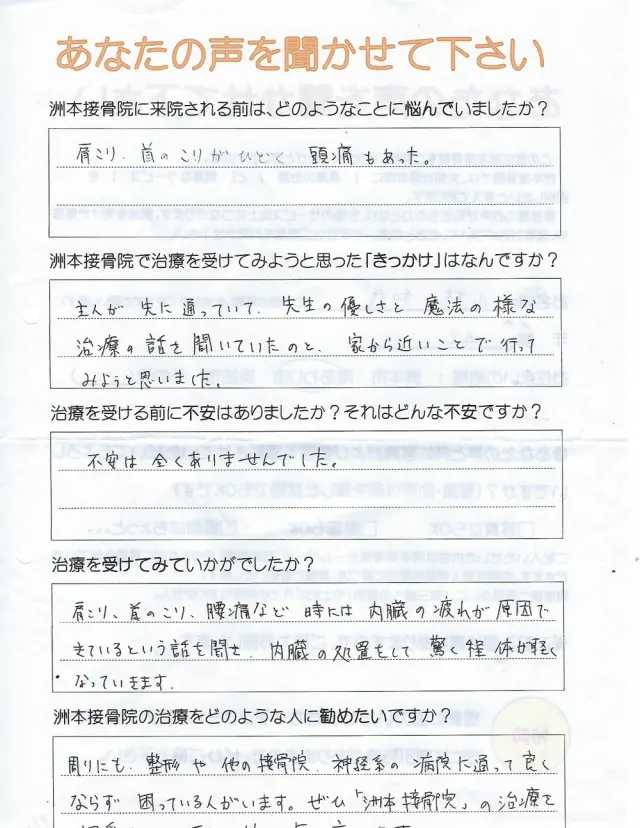 あなたの声を聞かせて下さい
洲本接骨院に来院される前は、どのようなことに悩んでいましたか？
肩こり、首のこりがひどく 頭痛もあった。
洲本接骨院で治療を受けてみようと思った「きっかけ」はなんですか？
主人が 先に通っていて、先生の優しさと 魔法の様な
治療の話を聞いていたのと、家から近いことで行って
みようと思いました。
治療を受ける前に不安はありましたか？それはどんな不安ですか？
不安は 全くありませんでした。
治療を受けてみていかがでしたか？
肩こり、首のこり、腰痛など 時には 内臓の疲れが原因で
きているという話を聞き、内臓の処置をして 驚く程 体が軽く
なっていきます。
洲本接骨院の治療をどのような人に勧めたいですか？
周りにも、整形や他の接骨院、神経系の病院に通って良く
ならず 困っている人がいます。ぜひ「洲本接骨院」の治療を